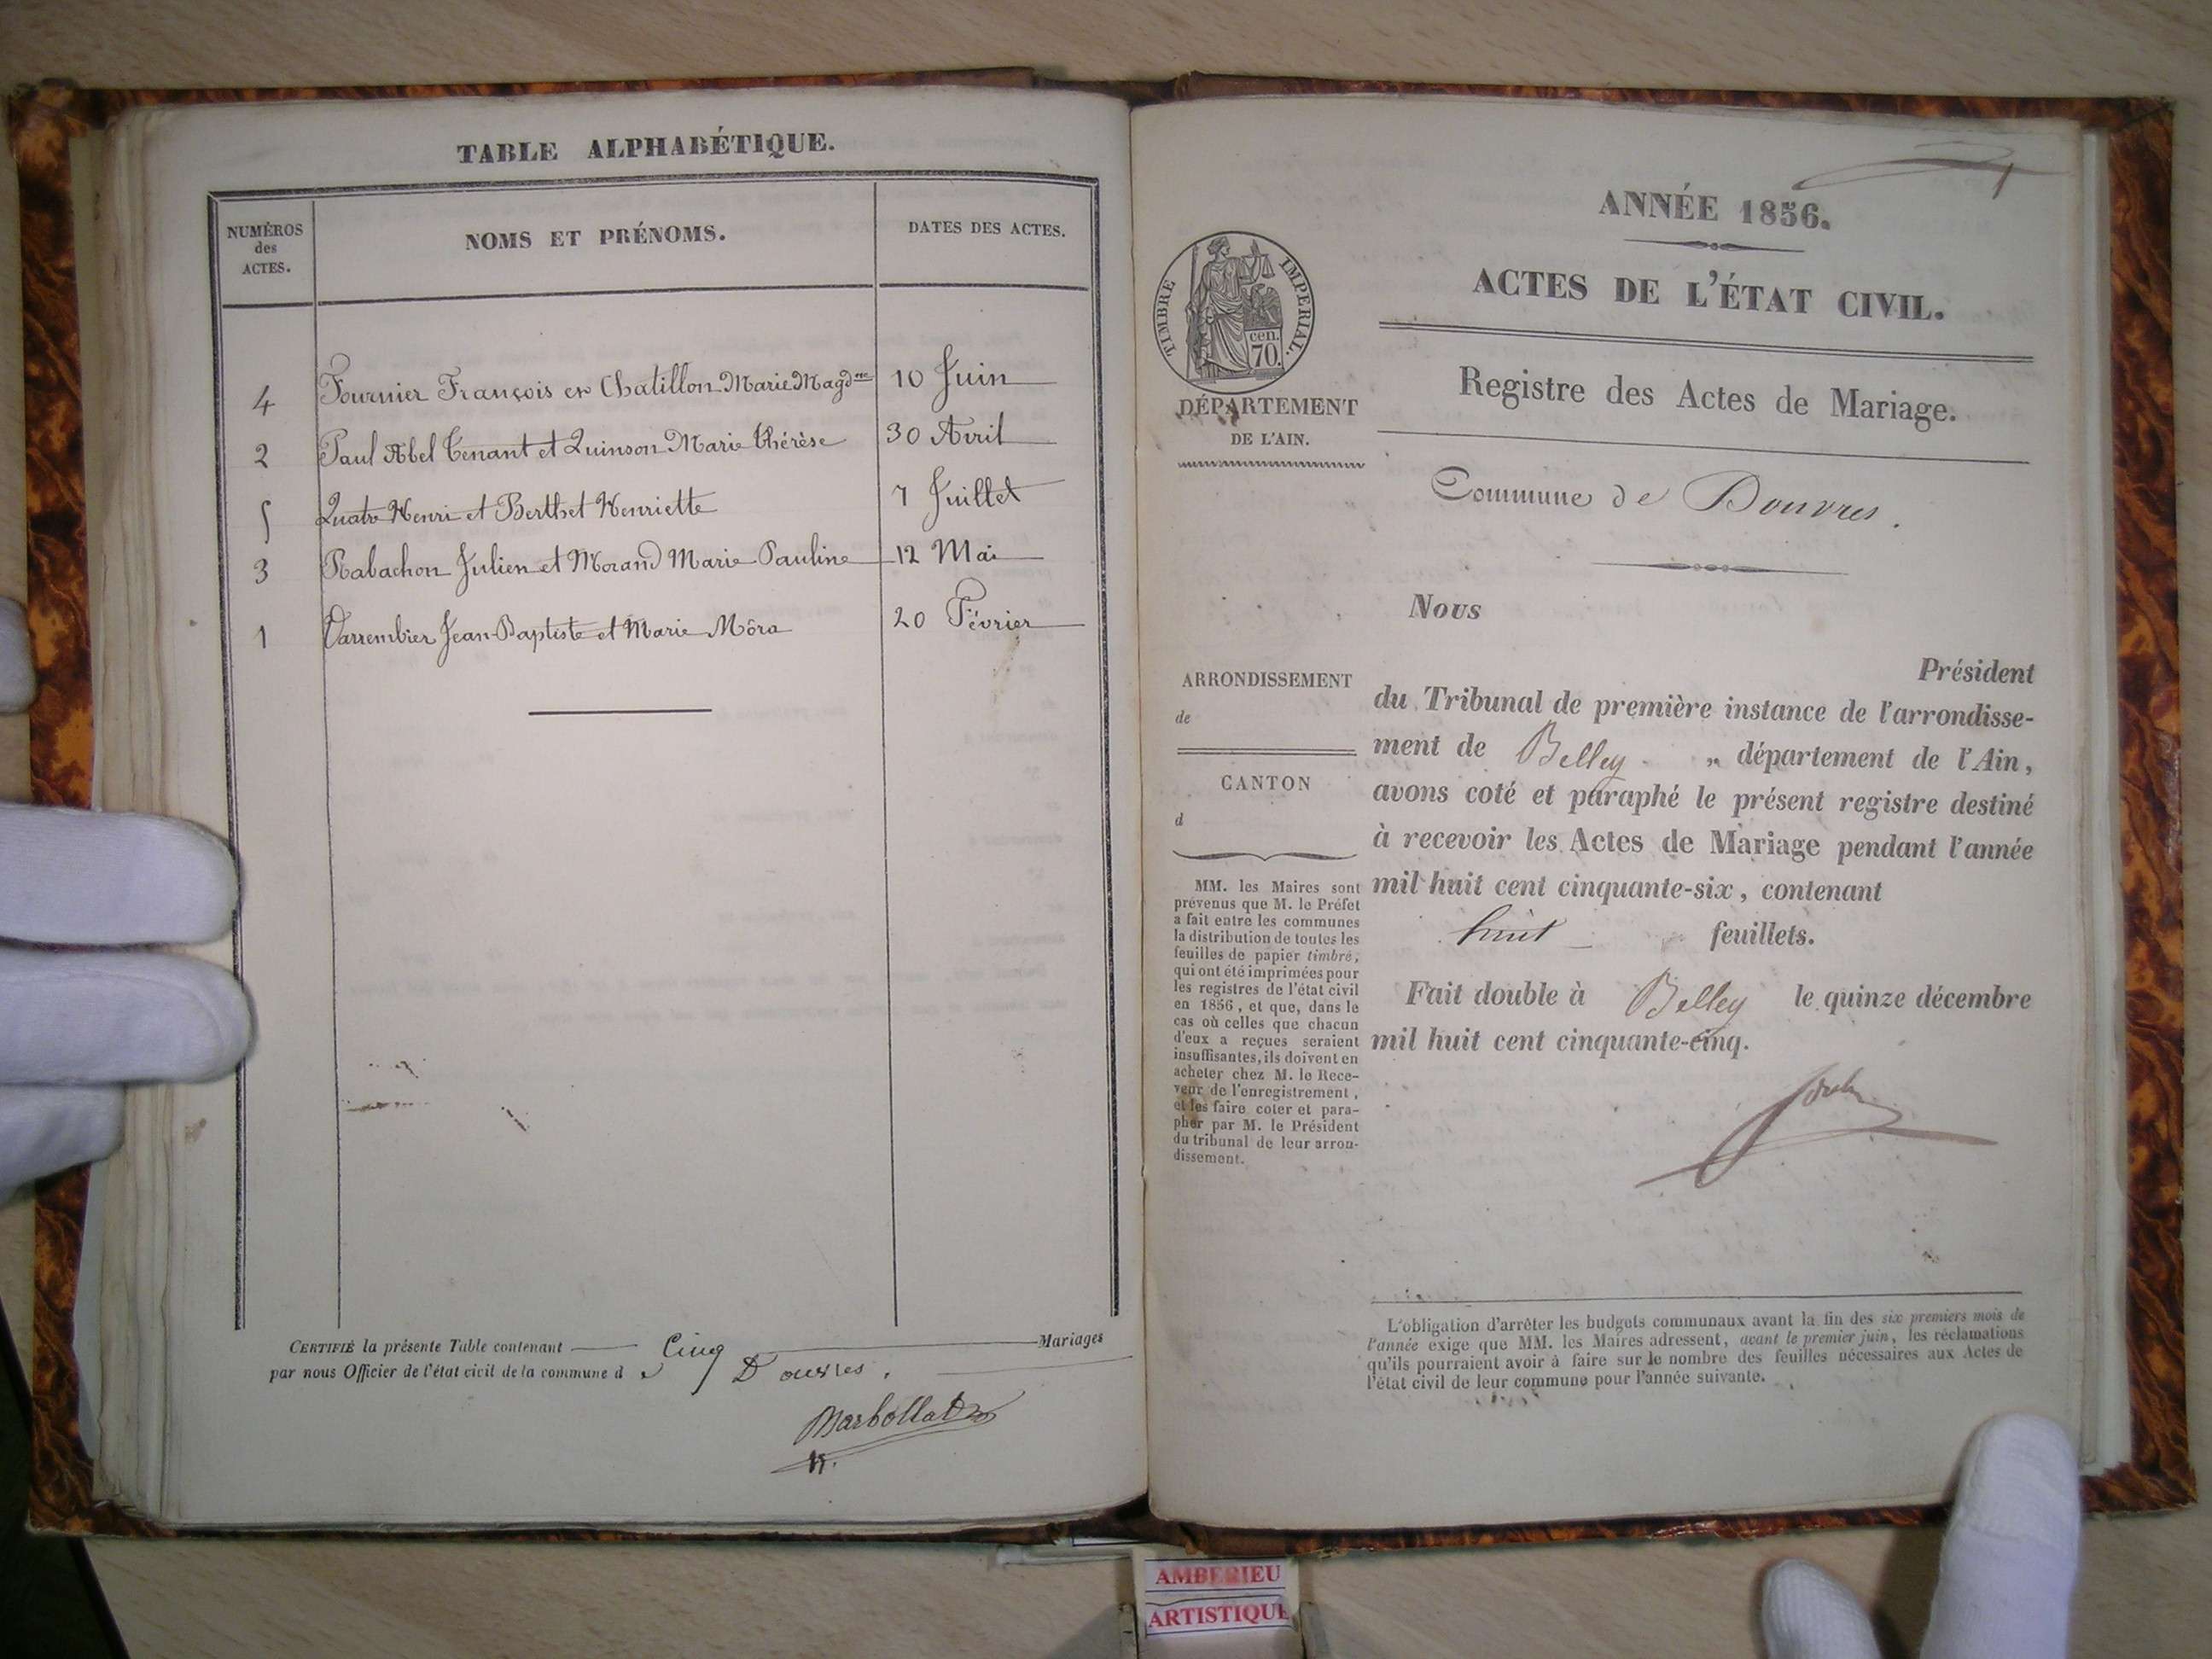 TABLE ALPHABÉTIQUE.
NUMÉROS des ACTES.
NOMS ET PRÉNOMS.
DATES DES ACTES.
4 Fournier François et Chatillon Marie Magdne 10 Juin
2 Paul Abel Tenant et Quinson Marie thérèse 30 Avril
5 Quatre Henri et Berthet Henriette 7 Juillet
3 Rabachon Julien et Morand Marie Pauline 12 Mai
1 Varrembier Jean-Baptiste et Marie Môra 20 Février
CERTIFIÉ la présente Table contenant Cinq Mariages
par nous Officier de l'état civil de la commune de Douvres.
Marbollat
ANNÉE 1856.
ACTES DE L'ÉTAT CIVIL.
TIMBRE IMPERIAL.
cen.
70.
Registre des Actes de Mariage.
DÉPARTEMENT
DE L'AIN.
Commune de Douvres.
Nous
Président
du Tribunal de première instance de l'arrondisse-
ment de Belley „ département de l'Ain,
avons coté et paraphé le présent registre destiné
à recevoir les Actes de Mariage pendant l'année
mil huit cent cinquante-six, contenant
huit feuillets.
Fait double à Belley le quinze décembre
mil huit cent cinquante-cinq.
ARRONDISSEMENT
de
CANTON
d
MM. les Maires sont
prévenus que M. le Préfet
a fait entre les communes
la distribution de toutes les
feuilles de papier timbré,
qui ont été imprimées pour
les registres de l'état civil
en 1856, et que, dans le
cas où celles que chacun
d'eux a reçues seraient
insuffisantes, ils doivent en
acheter chez M. le Rece-
veur de l'enregistrement,
et les faire coter et para-
pher par M. le Président
du tribunal de leur arron-
dissement.
L'obligation d'arrêter les budgets communaux avant la fin des six premiers mois de
l'année exige que MM. les Maires adressent, avant le premier juin, les réclamations
qu'ils pourraient avoir à faire sur le nombre des feuilles nécessaires aux Actes de
l'état civil de leur commune pour l'année suivante.
AMBERIEU
ARTISTIQUE